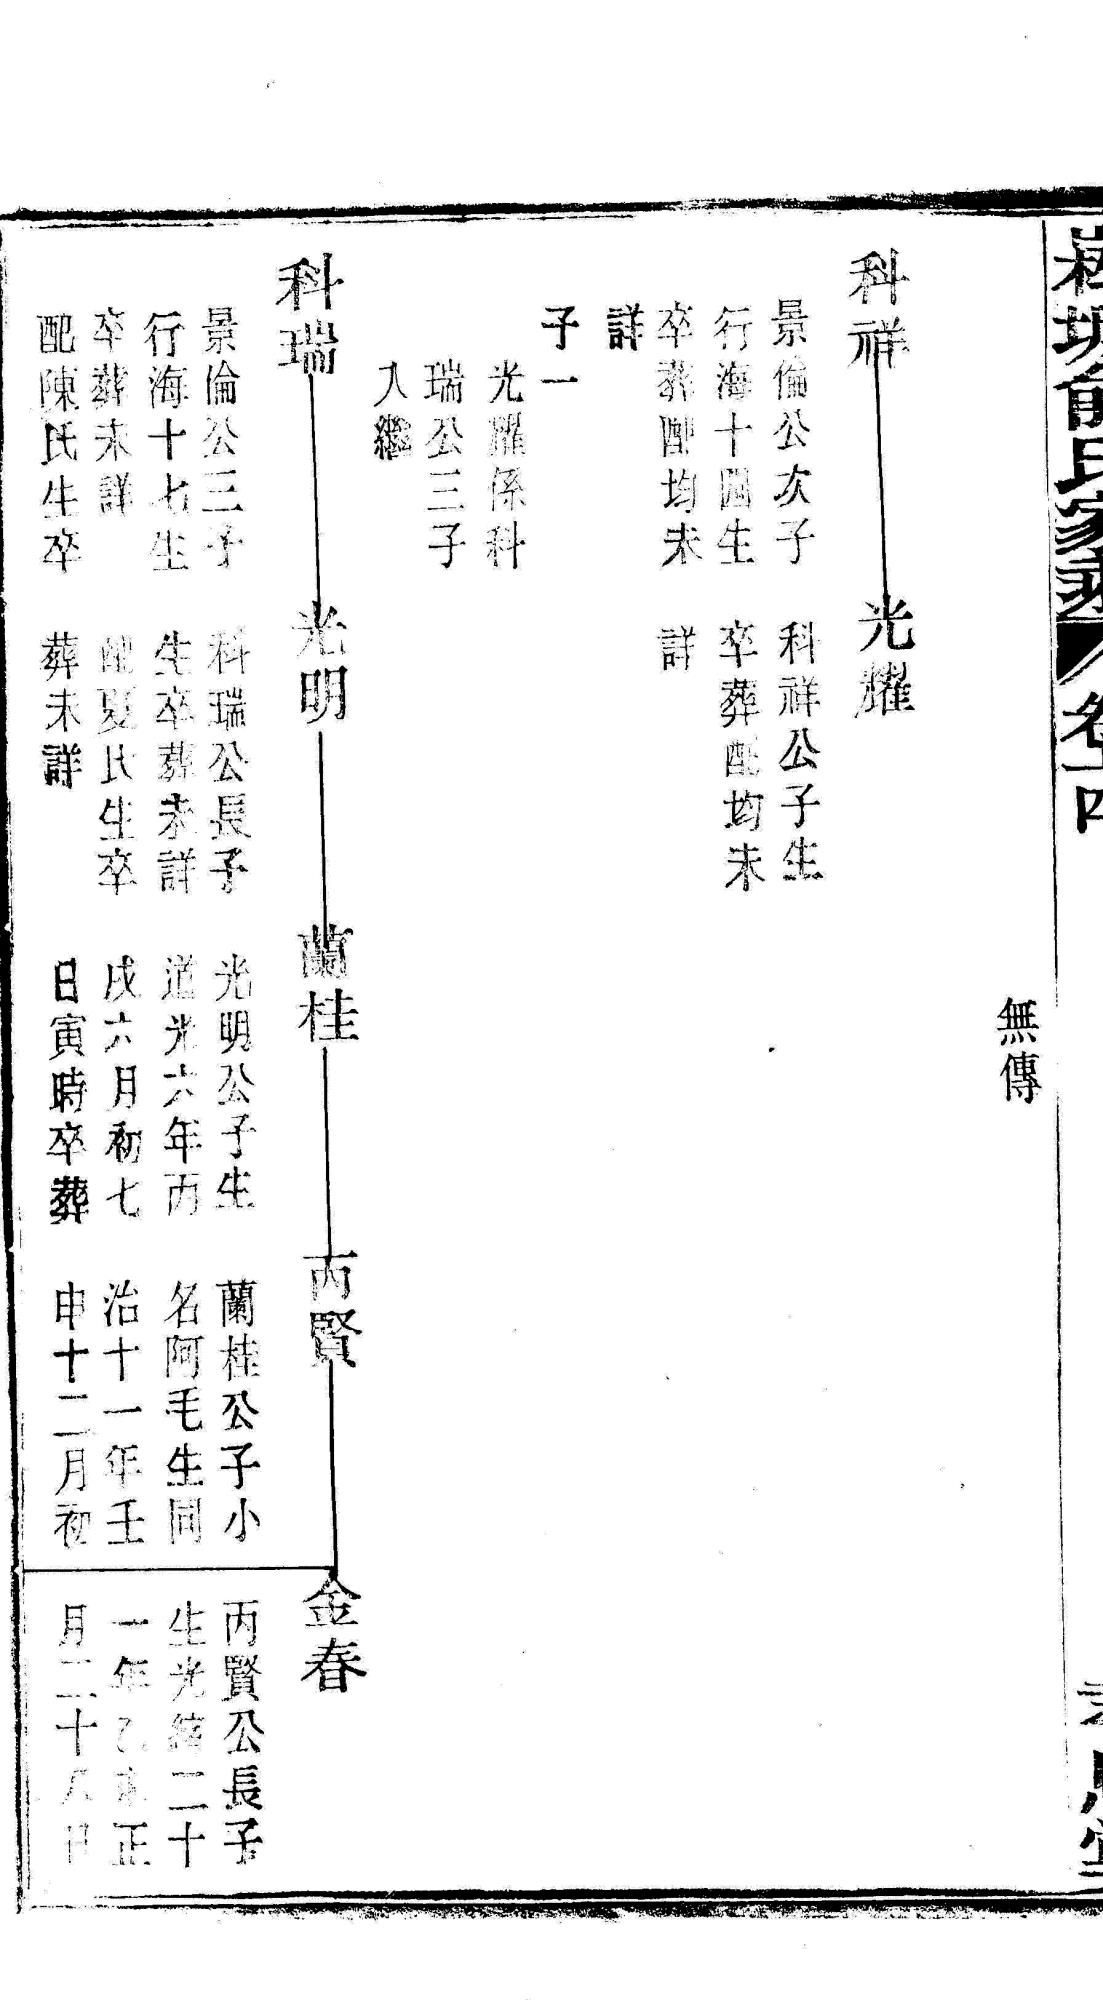 俞氏家乘
卷十四
思堂
無傳
科祥
景倫公次子
行海十四生
卒葬配均未
詳
子一
光耀係科
瑞公三子
入繼
光耀
科祥公子生
卒葬配均未
詳
科瑞
景倫公三子
行海十七生
卒葬未詳
配陳氏生卒
光明
科瑞公長子
生卒葬未詳
配夏氏生卒
葬未詳
蘭桂
光明公子生
道光六年丙
戌六月初七
日寅時卒葬
丙賢
蘭桂公子小
名阿毛生同
治十一年壬
申十二月初
金春
丙賢公長子
生光緒二十
一年乙未正
月二十八日